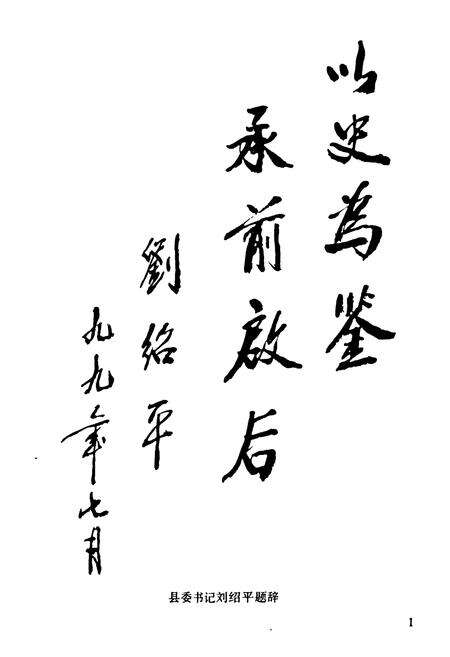 以史為鉴
承前啟后
劉绍平
九九年七月
县委书记刘绍平题辞
1